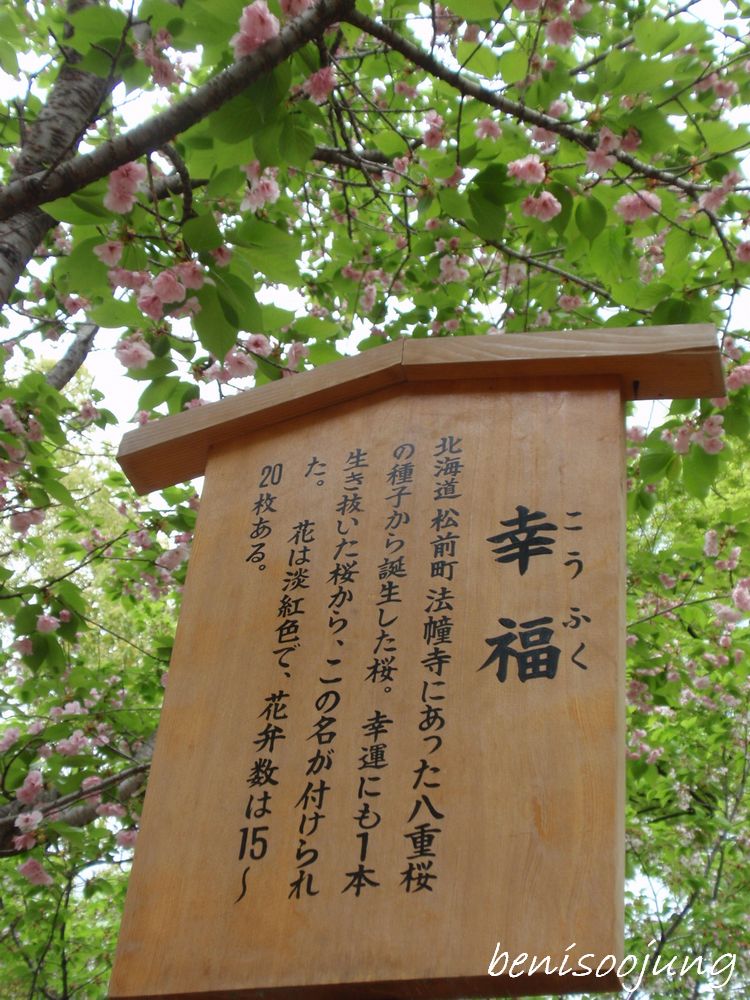 幸福
こうふく
北海道 松前町 法幢寺にあった八重桜
の種子から誕生した桜。 幸運にも1本
生き抜いた桜から、この名が付けられ
た。 花は淡紅色で、花弁数は15〜
20枚ある。
benisoojung